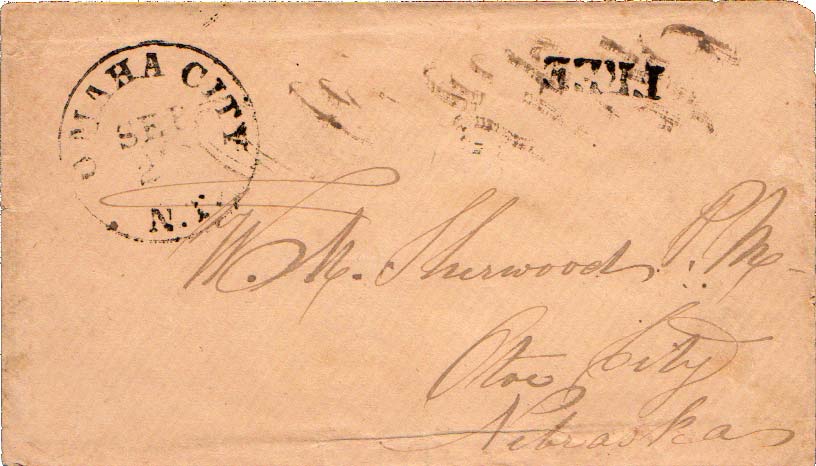 OMAHA CITY
SEP
2
N.T.
FREE
W. M. Sherwood P.M.
Otoe City
Nebraska